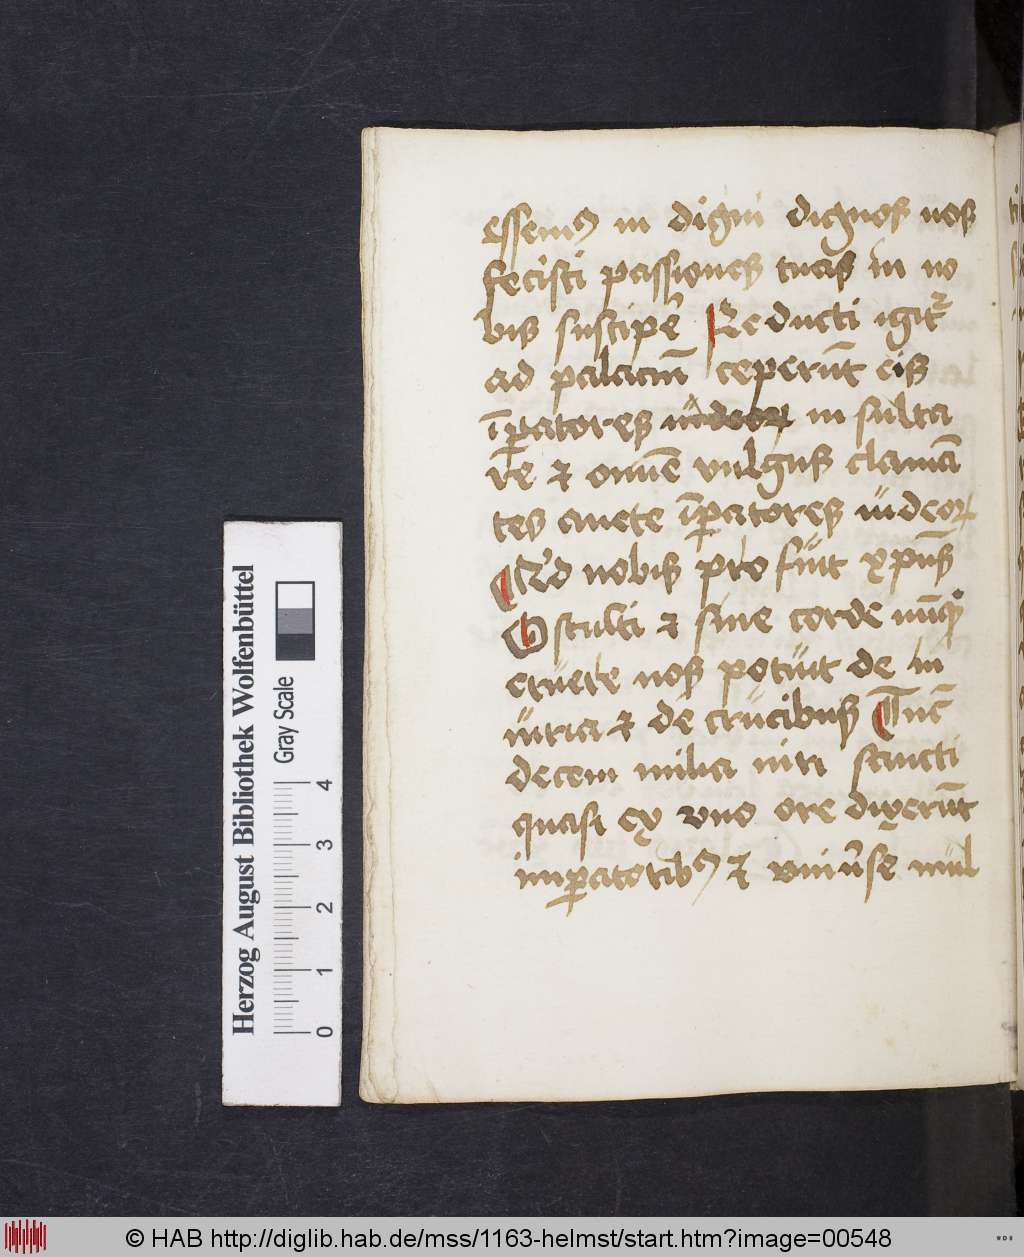 essemꝰ in digni dignos nos
fecisti passiones tuas in no
bis suscipe᷒ Reducti igit᷑
ad palaciū ceperūt eis
īꝑatores in sulta
re ⁊ omē vulgus clamā
tes auete īꝑatores iudeoꝝ
Qͥd nobis pro fuit xpūs
O stulti ⁊ sine corde nūqͥ
eruere nos potuit de in
iuria ⁊ de crucibus Tūc
decem milia viri sancti
quasi ex vno ore dixerūt
imꝑatoribꝰ ⁊ vniūse mul
Herzog August Bibliothek Wolfenbüttel
Gray Scale
0 1 2 3 4
© HAB http://diglib.hab.de/mss/1163-helmst/start.htm?image=00548